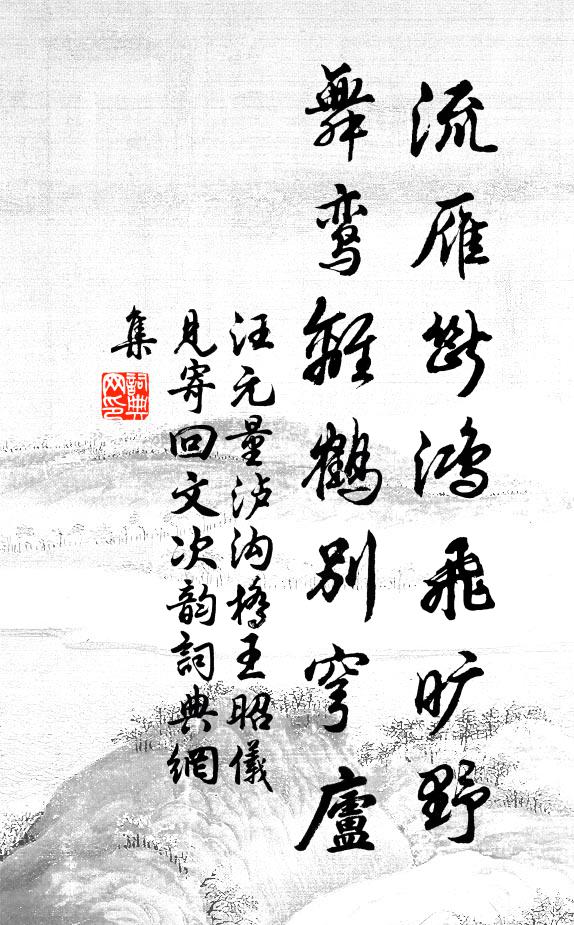 流雁断鸿飛旷野
舞鸾離鶴別穹廬
汪元量泸沟橋王昭儀
見寄回文次韵詞典網
集
詞典
网印